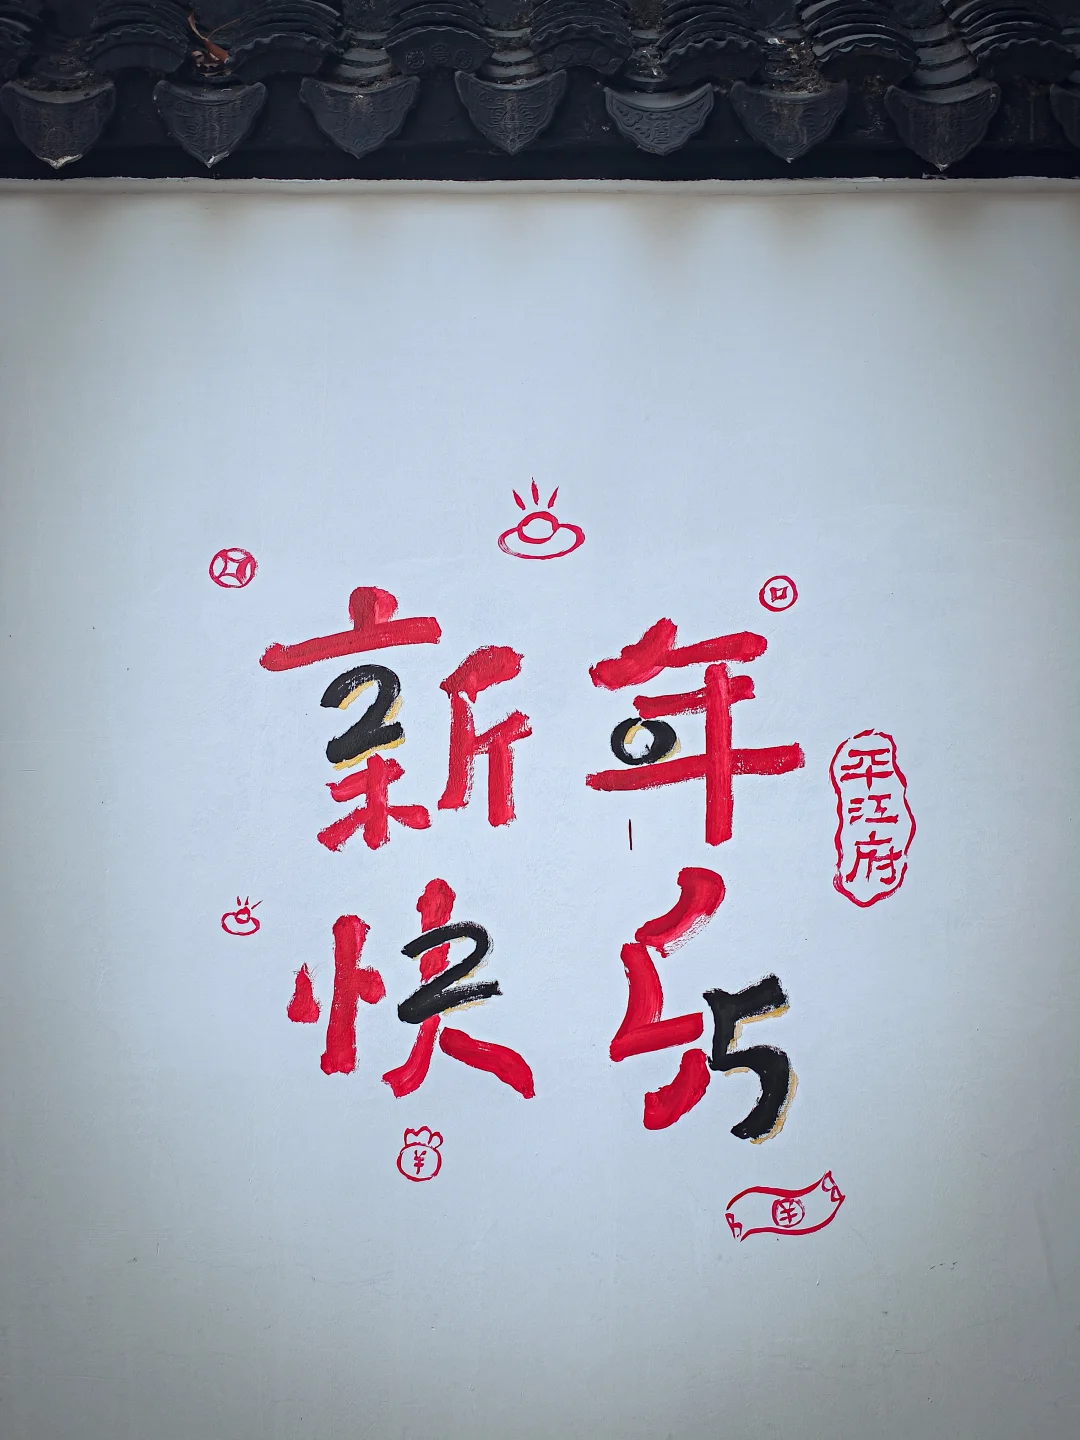 新年
快乐
2025
平江府